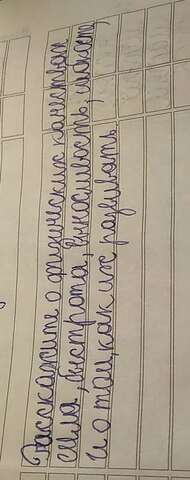 Расскажите о физических качествах
сила, быстрота, выносливость, гибкость,
и о том, как их развивать